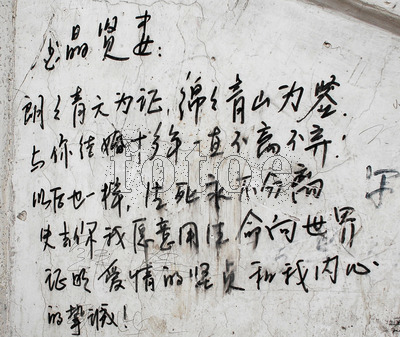 玉晶贤妻:
朗々青天为证,绵々青山为鉴.
与你结婚十多年一直不离不弃.
以后也一样,生死永不分离
失去你我愿意用生命向世界
证明爱情的坚贞和我内心
的挚诚!
字
fotoe